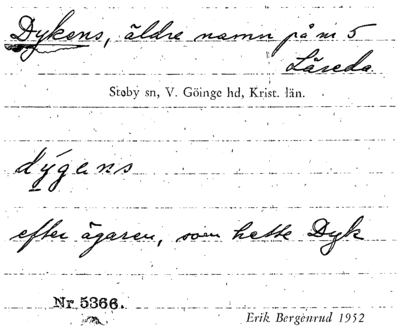 Dykens, äldre namn på nr 5
Läreda
Stoby sn, V. Göinge hd, Krist. län.
dýgens
efter ägaren, som hette Dyk
Nr. 5366.
Erik Bergenrud 1952